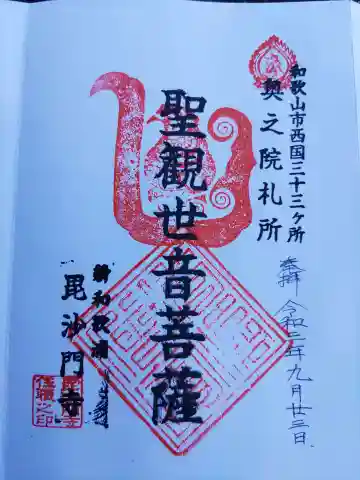 和歌山市西国三十三ヶ所
奥之院札所
奉拝 令和二年九月廿三日
聖観世音菩薩
新和歌浦
毘沙門寺
住職之印